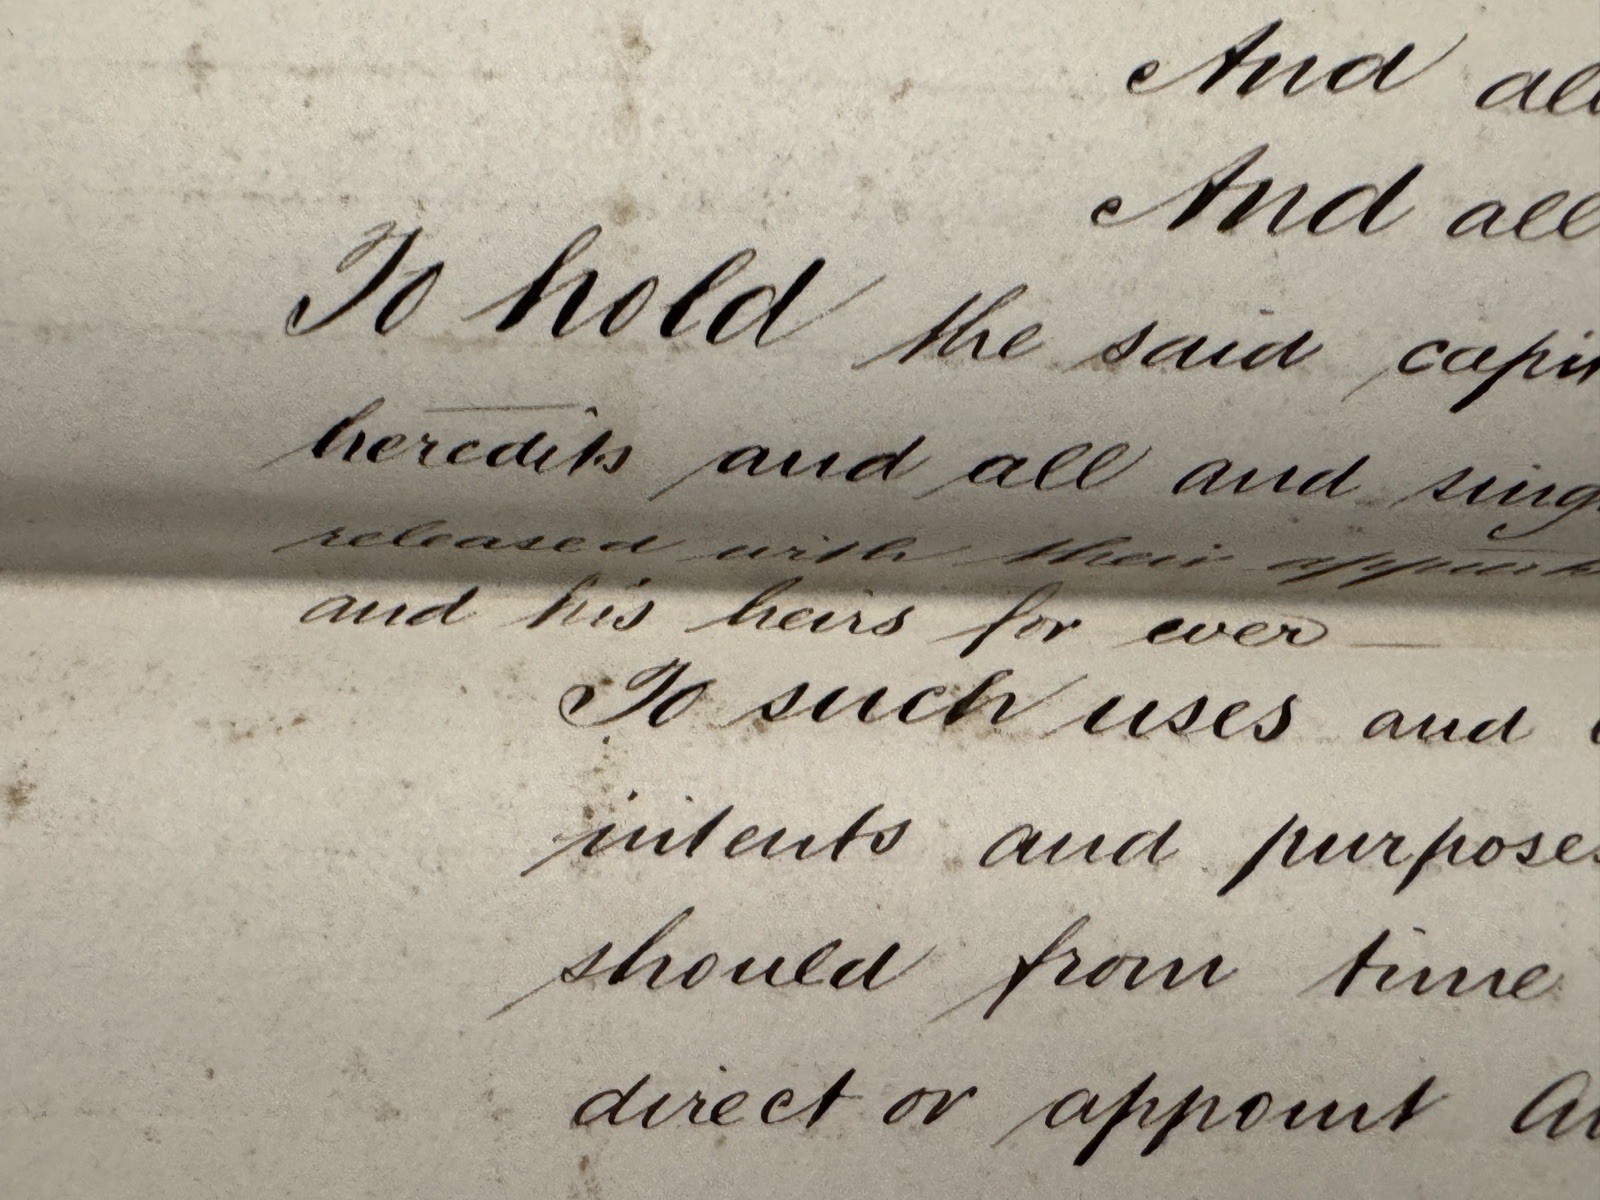 And all
And all
To hold the said capi
heredits and all and sing
released with their appurt
and his heirs for ever —
To such uses and
intents and purposes
should from time
direct or appoint